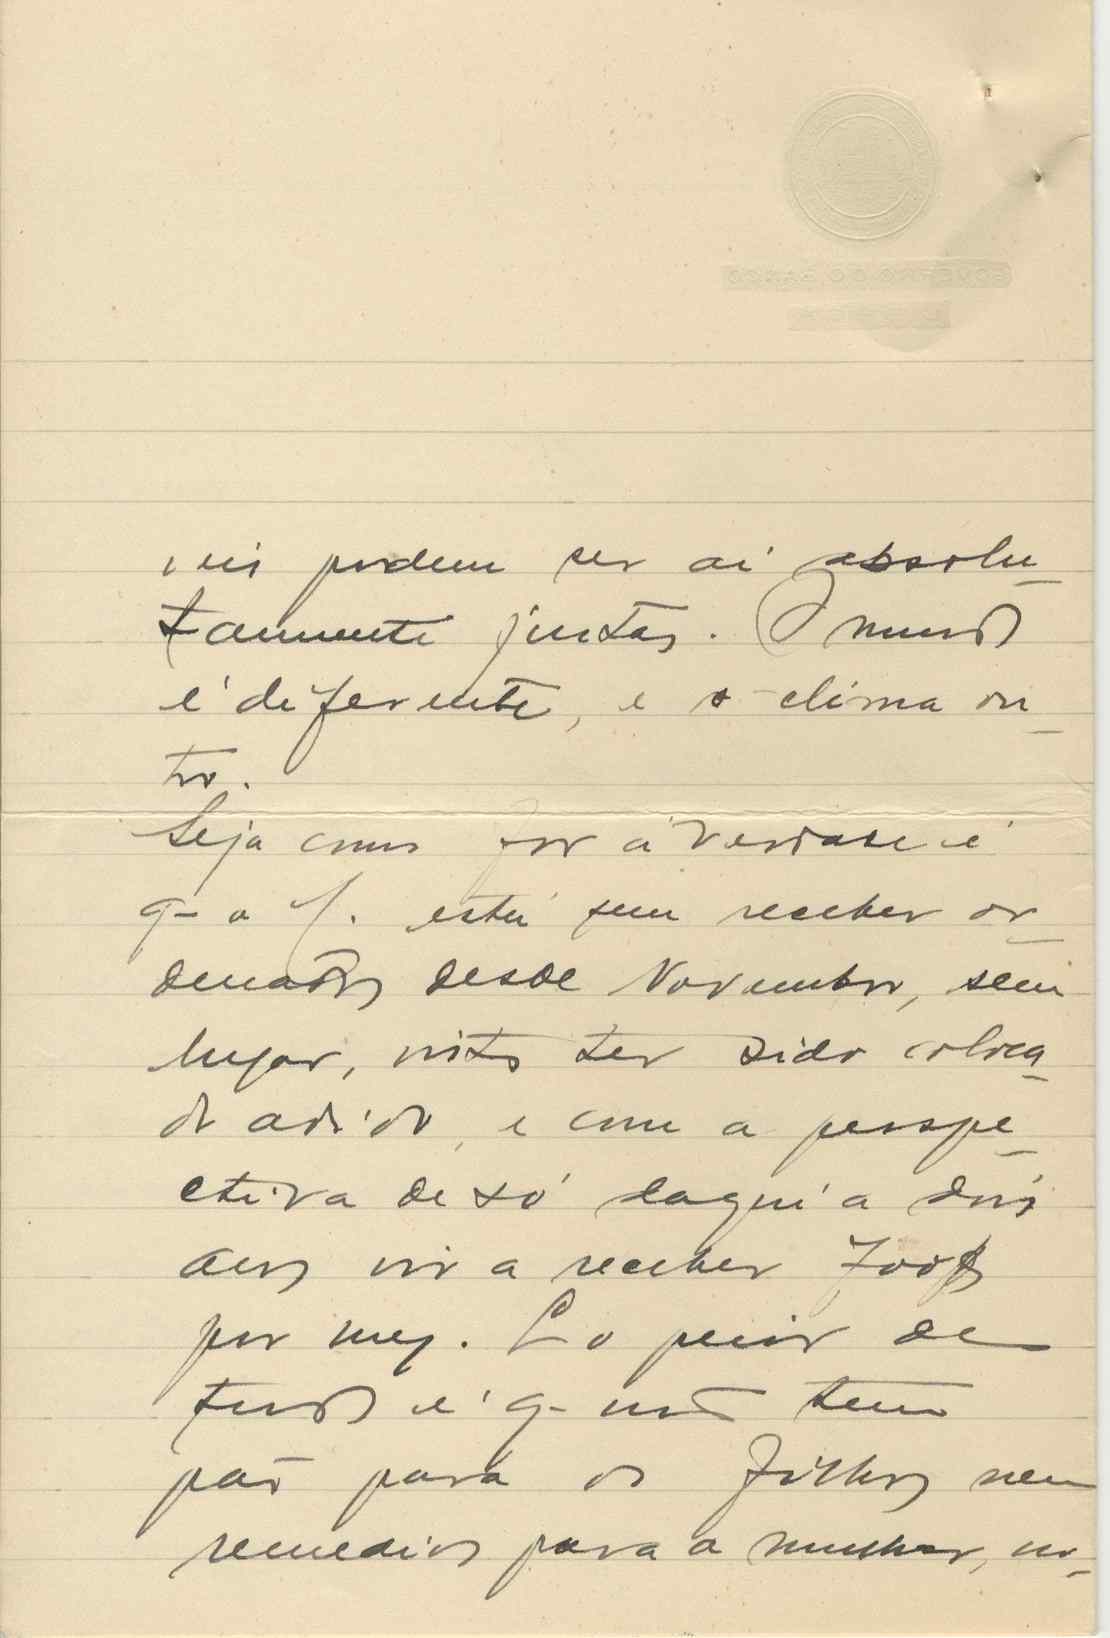 veis podem ser aí absolu-
tamente justas. O mundo
é diferente, e o clima ou-
tro.
Seja como for a verdade é
q- o J. está sem receber or-
denados desde Novembro, sem
lugar, visto ter sido coloca-
do adido, e com a perspe-
ctiva de só daqui a dois
anos vir a receber 700$
por mez. E o peior de
tudo é q- não tem
pão para os filhos nem
remedios para a mulher, no-